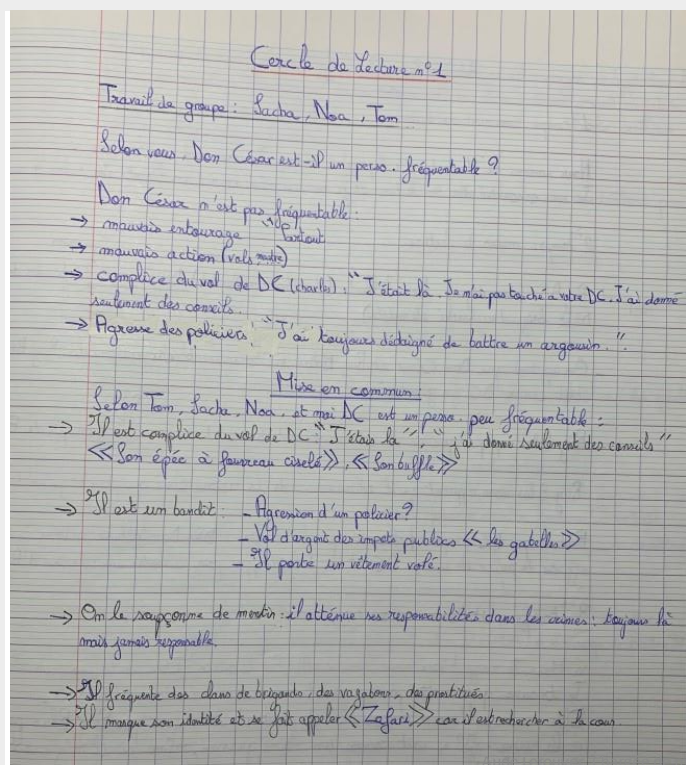 Cercle de Lecture n°1
Travail de groupe : Sacha, Noa, Tom
Selon vous, Don César est-il un perso. fréquentable ?
Don César n'est pas fréquentable :
→ mauvais entourage "Partout
→ mauvais action (vols)
→ complice du vol de DC (charles) : "J'étais là. Je n'ai pas touché a votre DC. J'ai donné
seulement des conseils.
→ Agresse des policiers : "J'ai toujours dédaigné de battre un argousin.".
Mise en commun :
Selon Tom, Sacha, Noa, et moi DC est un perso. peu fréquentable :
→ Il est complice du vol de DC : "J'étais la", "j'ai donné seulement des conseils"
<<Son épée à fourreau ciselé>>, <<Son buffle>>
→ Il est un bandit. - Agression d'un policier ?
- Vol d'argent des impots publics << les gabelles>>
- Il porte un vêtement volé.
→ On le soupçonne de mentir : il atténue ses responsabilités dans les crimes : toujours là
mais jamais responsable.
→ Il fréquente des clans de brigands, des vagabons, des prostitués
→ Il masque son identité et se fait appeler <<Zafari>> car il est rechercher à la cour.